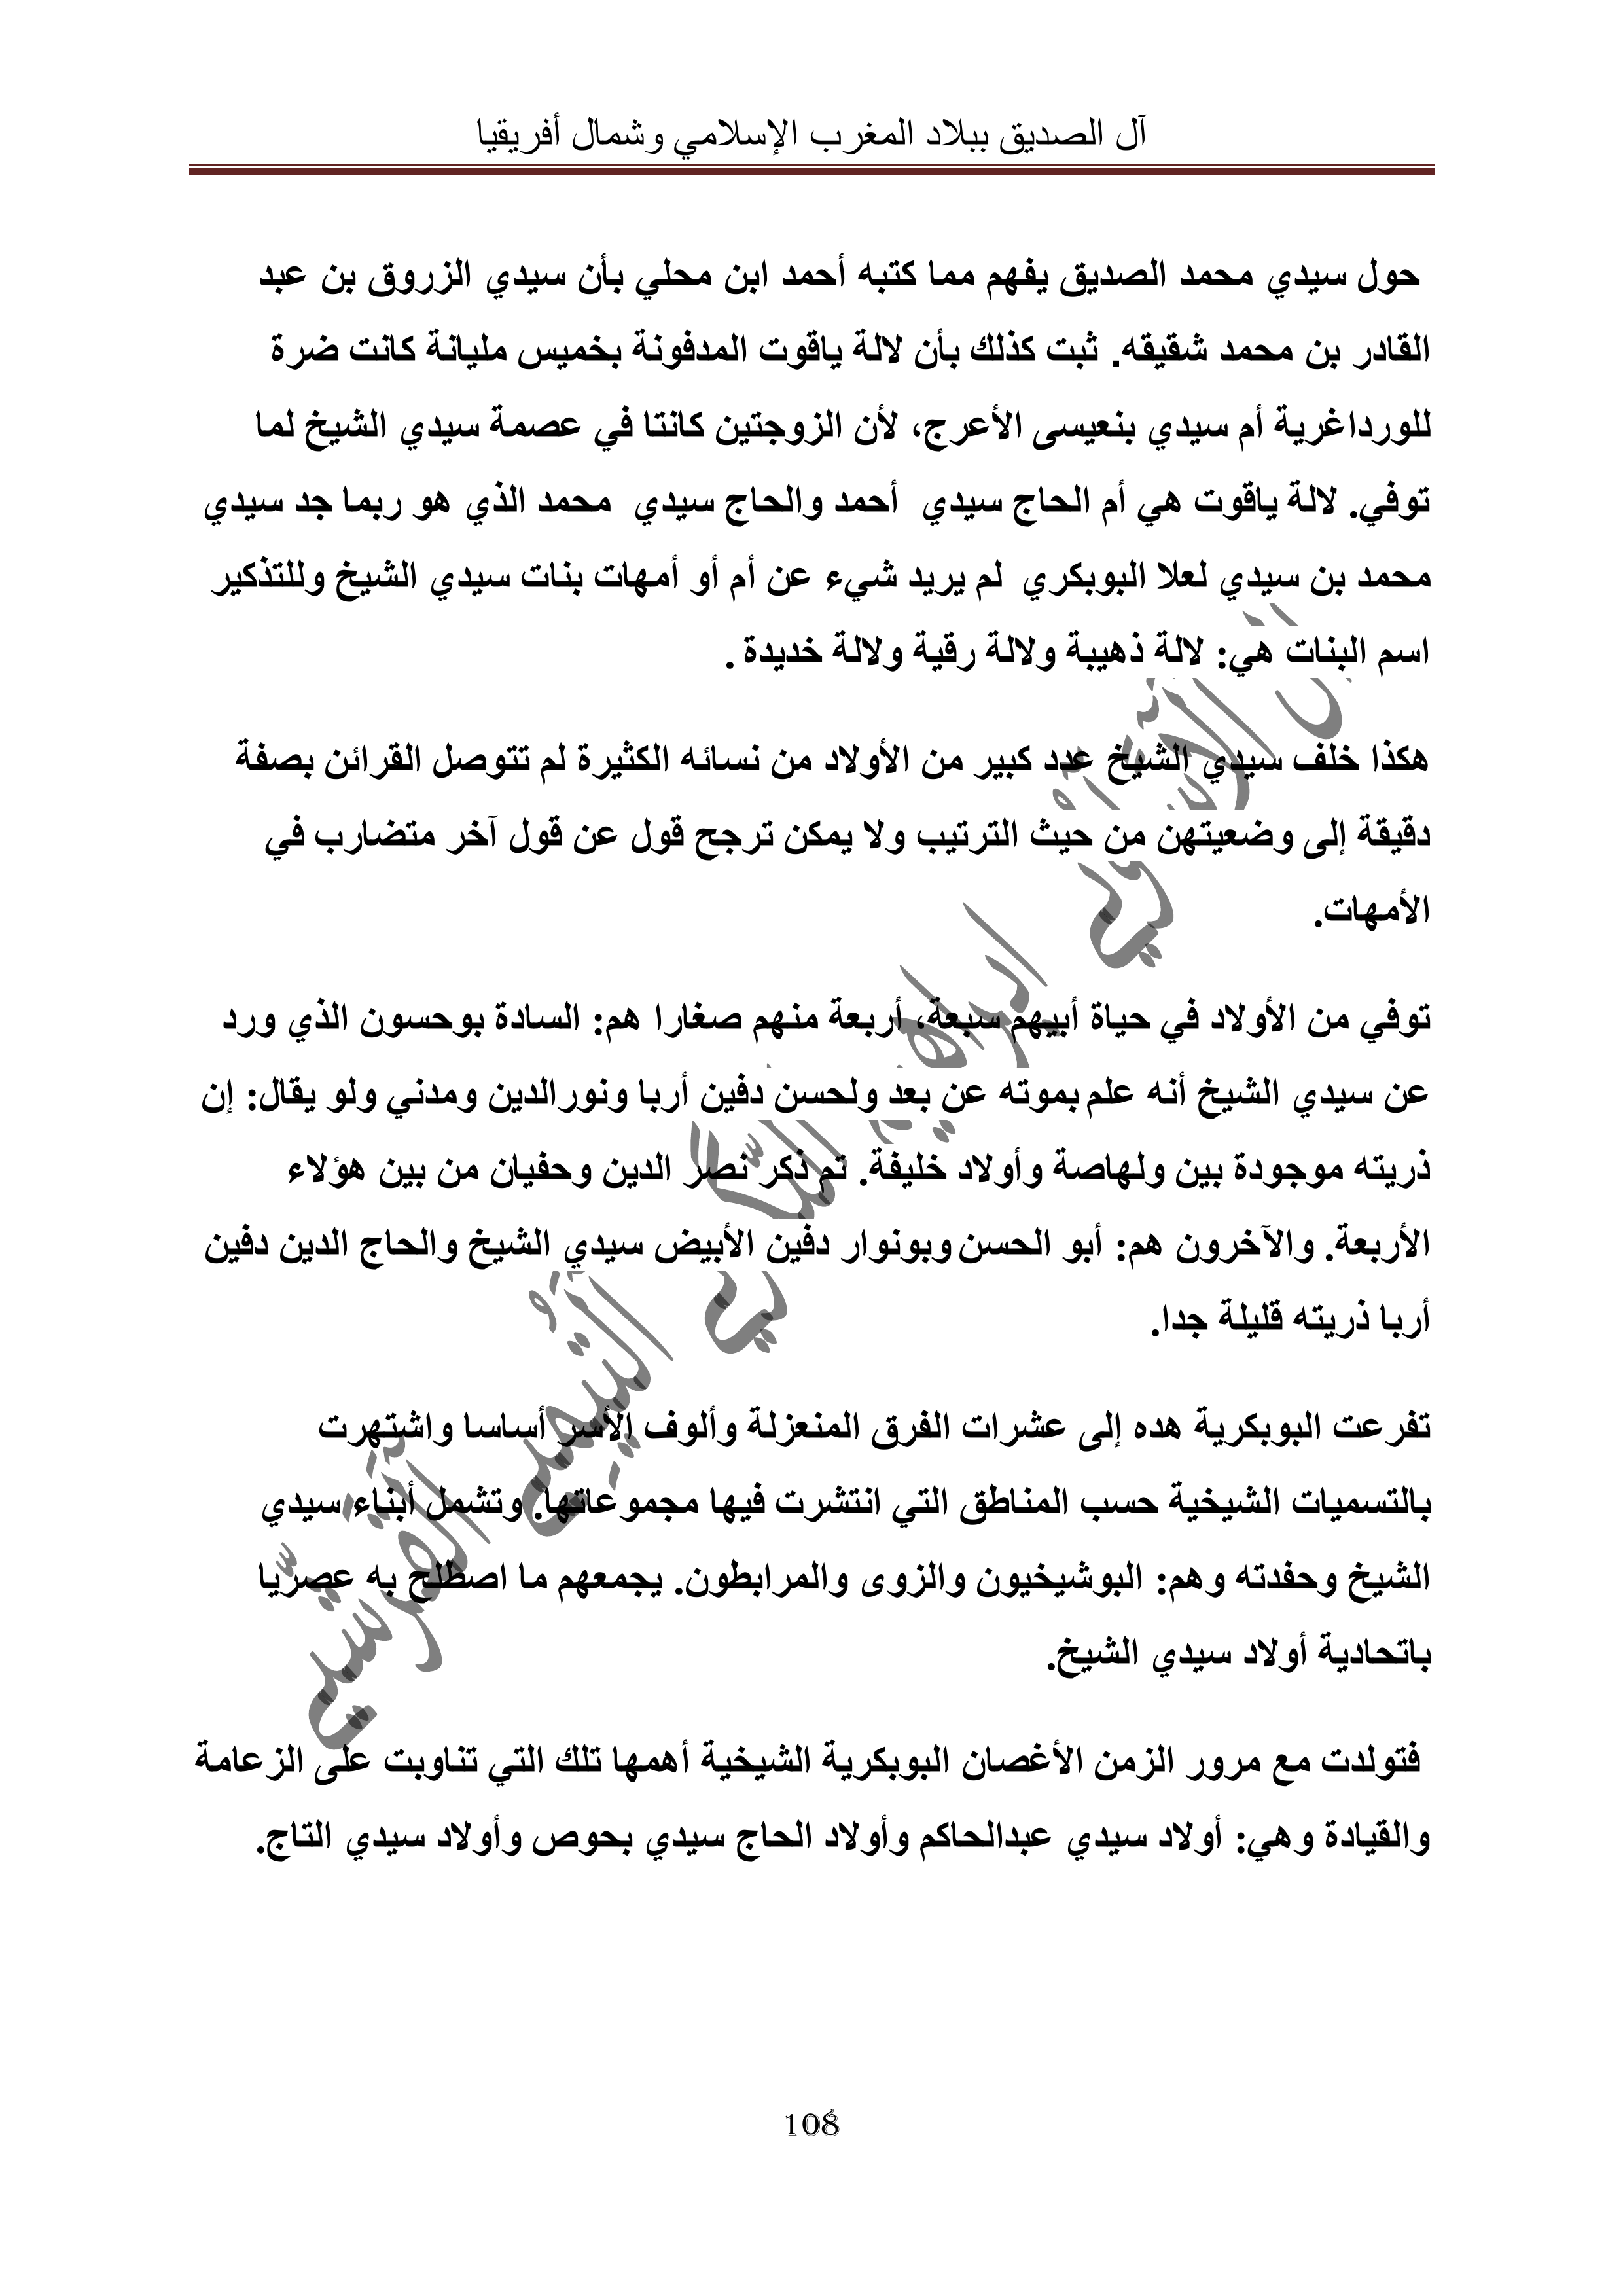 آل الصديق ببلاد المغرب الإسلامي وشمال أفريقيا
حول سيدي محمد الصديق يفهم مما كتبه أحمد ابن محلي بأن سيدي الزروق بن عبد
القادر بن محمد شقيقه. ثبت كذلك بأن لالة ياقوت المدفونة بخميس مليانة كانت ضرة
للورداغرية أم سيدي بنعيسى الأعرج، لأن الزوجتين كانتا في عصمة سيدي الشيخ لما
توفي. لالة ياقوت هي أم الحاج سيدي أحمد والحاج سيدي محمد الذي هو ربما جد سيدي
محمد بن سيدي لعلا البوبكري لم يريد شيء عن أم أو أمهات بنات سيدي الشيخ وللتذكير
اسم البنات هي: لالة ذهيبة ولالة رقية ولالة خديدة .
هكذا خلف سيدي الشيخ عدد كبير من الأولاد من نسائه الكثيرة لم تتوصل القرائن بصفة
دقيقة إلى وضعيتهن من حيث الترتيب ولا يمكن ترجح قول عن قول آخر متضارب في
الأمهات.
توفي من الأولاد في حياة أبيهم سبعة، أربعة منهم صغارا هم: السادة بوحسون الذي ورد
عن سيدي الشيخ أنه علم بموته عن بعد ولحسن دفين أربا ونورالدين ومدني ولو يقال: إن
ذريته موجودة بين ولهاصة وأولاد خليفة. تم ذكر نصر الدين وحفيان من بين هؤلاء
الأربعة. والآخرون هم: أبو الحسن وبونوار دفين الأبيض سيدي الشيخ والحاج الدين دفين
أربا ذريته قليلة جدا.
تفرعت البوبكرية هده إلى عشرات الفرق المنعزلة وألوف الأسر أساسا واشتهرت
بالتسميات الشيخية حسب المناطق التي انتشرت فيها مجموعاتها. وتشمل أبناء سيدي
الشيخ وحفدته وهم: البوشيخيون والزوى والمرابطون. يجمعهم ما اصطلح به عصريا
باتحادية أولاد سيدي الشيخ.
فتولدت مع مرور الزمن الأغصان البوبكرية الشيخية أهمها تلك التي تناوبت على الزعامة
والقيادة وهي: أولاد سيدي عبدالحاكم وأولاد الحاج سيدي بحوص وأولاد سيدي التاج.
108